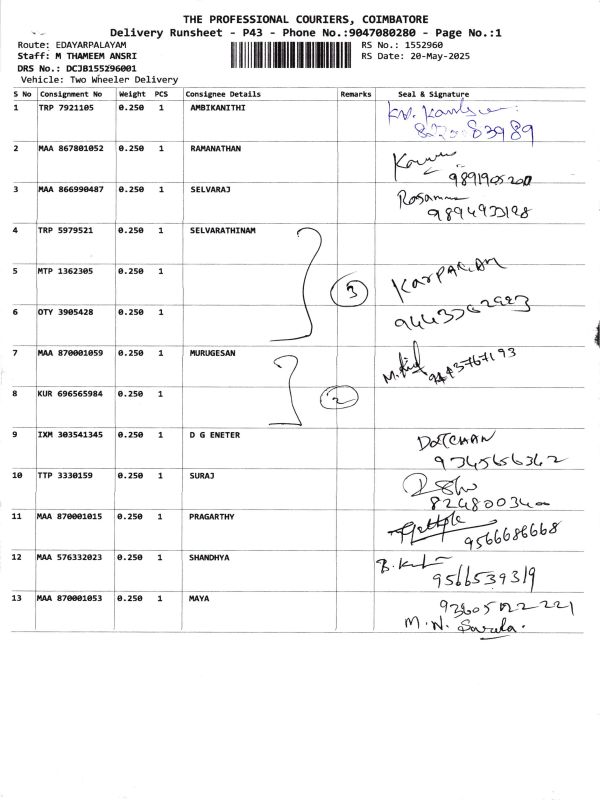 THE PROFESSIONAL COURIERS, COIMBATORE
Delivery Runsheet - P43 - Phone No.:9047080280 - Page No.:1
Route: EDAYARPALAYAM RS No.: 1552960
Staff: M THAMEEM ANSRI RS Date: 20-May-2025
DRS No.: DCJB155296001
Vehicle: Two Wheeler Delivery
S No Consignment No Weight PCS Consignee Details Remarks Seal & Signature
1 TRP 7921105 0.250 1 AMBIKANITHI
2 MAA 867801052 0.250 1 RAMANATHAN
3 MAA 866990487 0.250 1 SELVARAJ
4 TRP 5979521 0.250 1 SELVARATHINAM
5 MTP 1362305 0.250 1 3
6 OTY 3905428 0.250 1
7 MAA 870001059 0.250 1 MURUGESAN
8 KUR 696565984 0.250 1 2
9 IXM 303541345 0.250 1 D G ENETER
9345656362
10 TTP 3330159 0.250 1 SURAJ
11 MAA 870001015 0.250 1 PRAGARTHY
9566686668
12 MAA 576332023 0.250 1 SHANDHYA
9566539319
13 MAA 870001053 0.250 1 MAYA
M.N. Sarala.